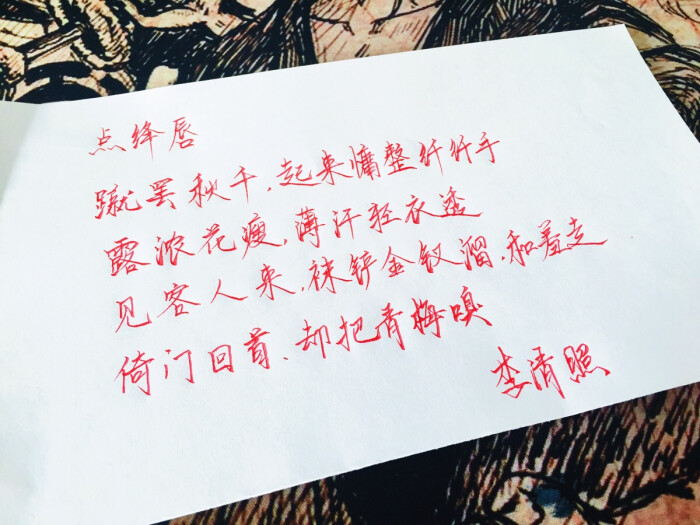 点绛唇
蹴罢秋千,起来慵整纤纤手
露浓花瘦,薄汗轻衣透
见客人来,袜铲金钗溜,和羞走
倚门回首、却把青梅嗅
李清照